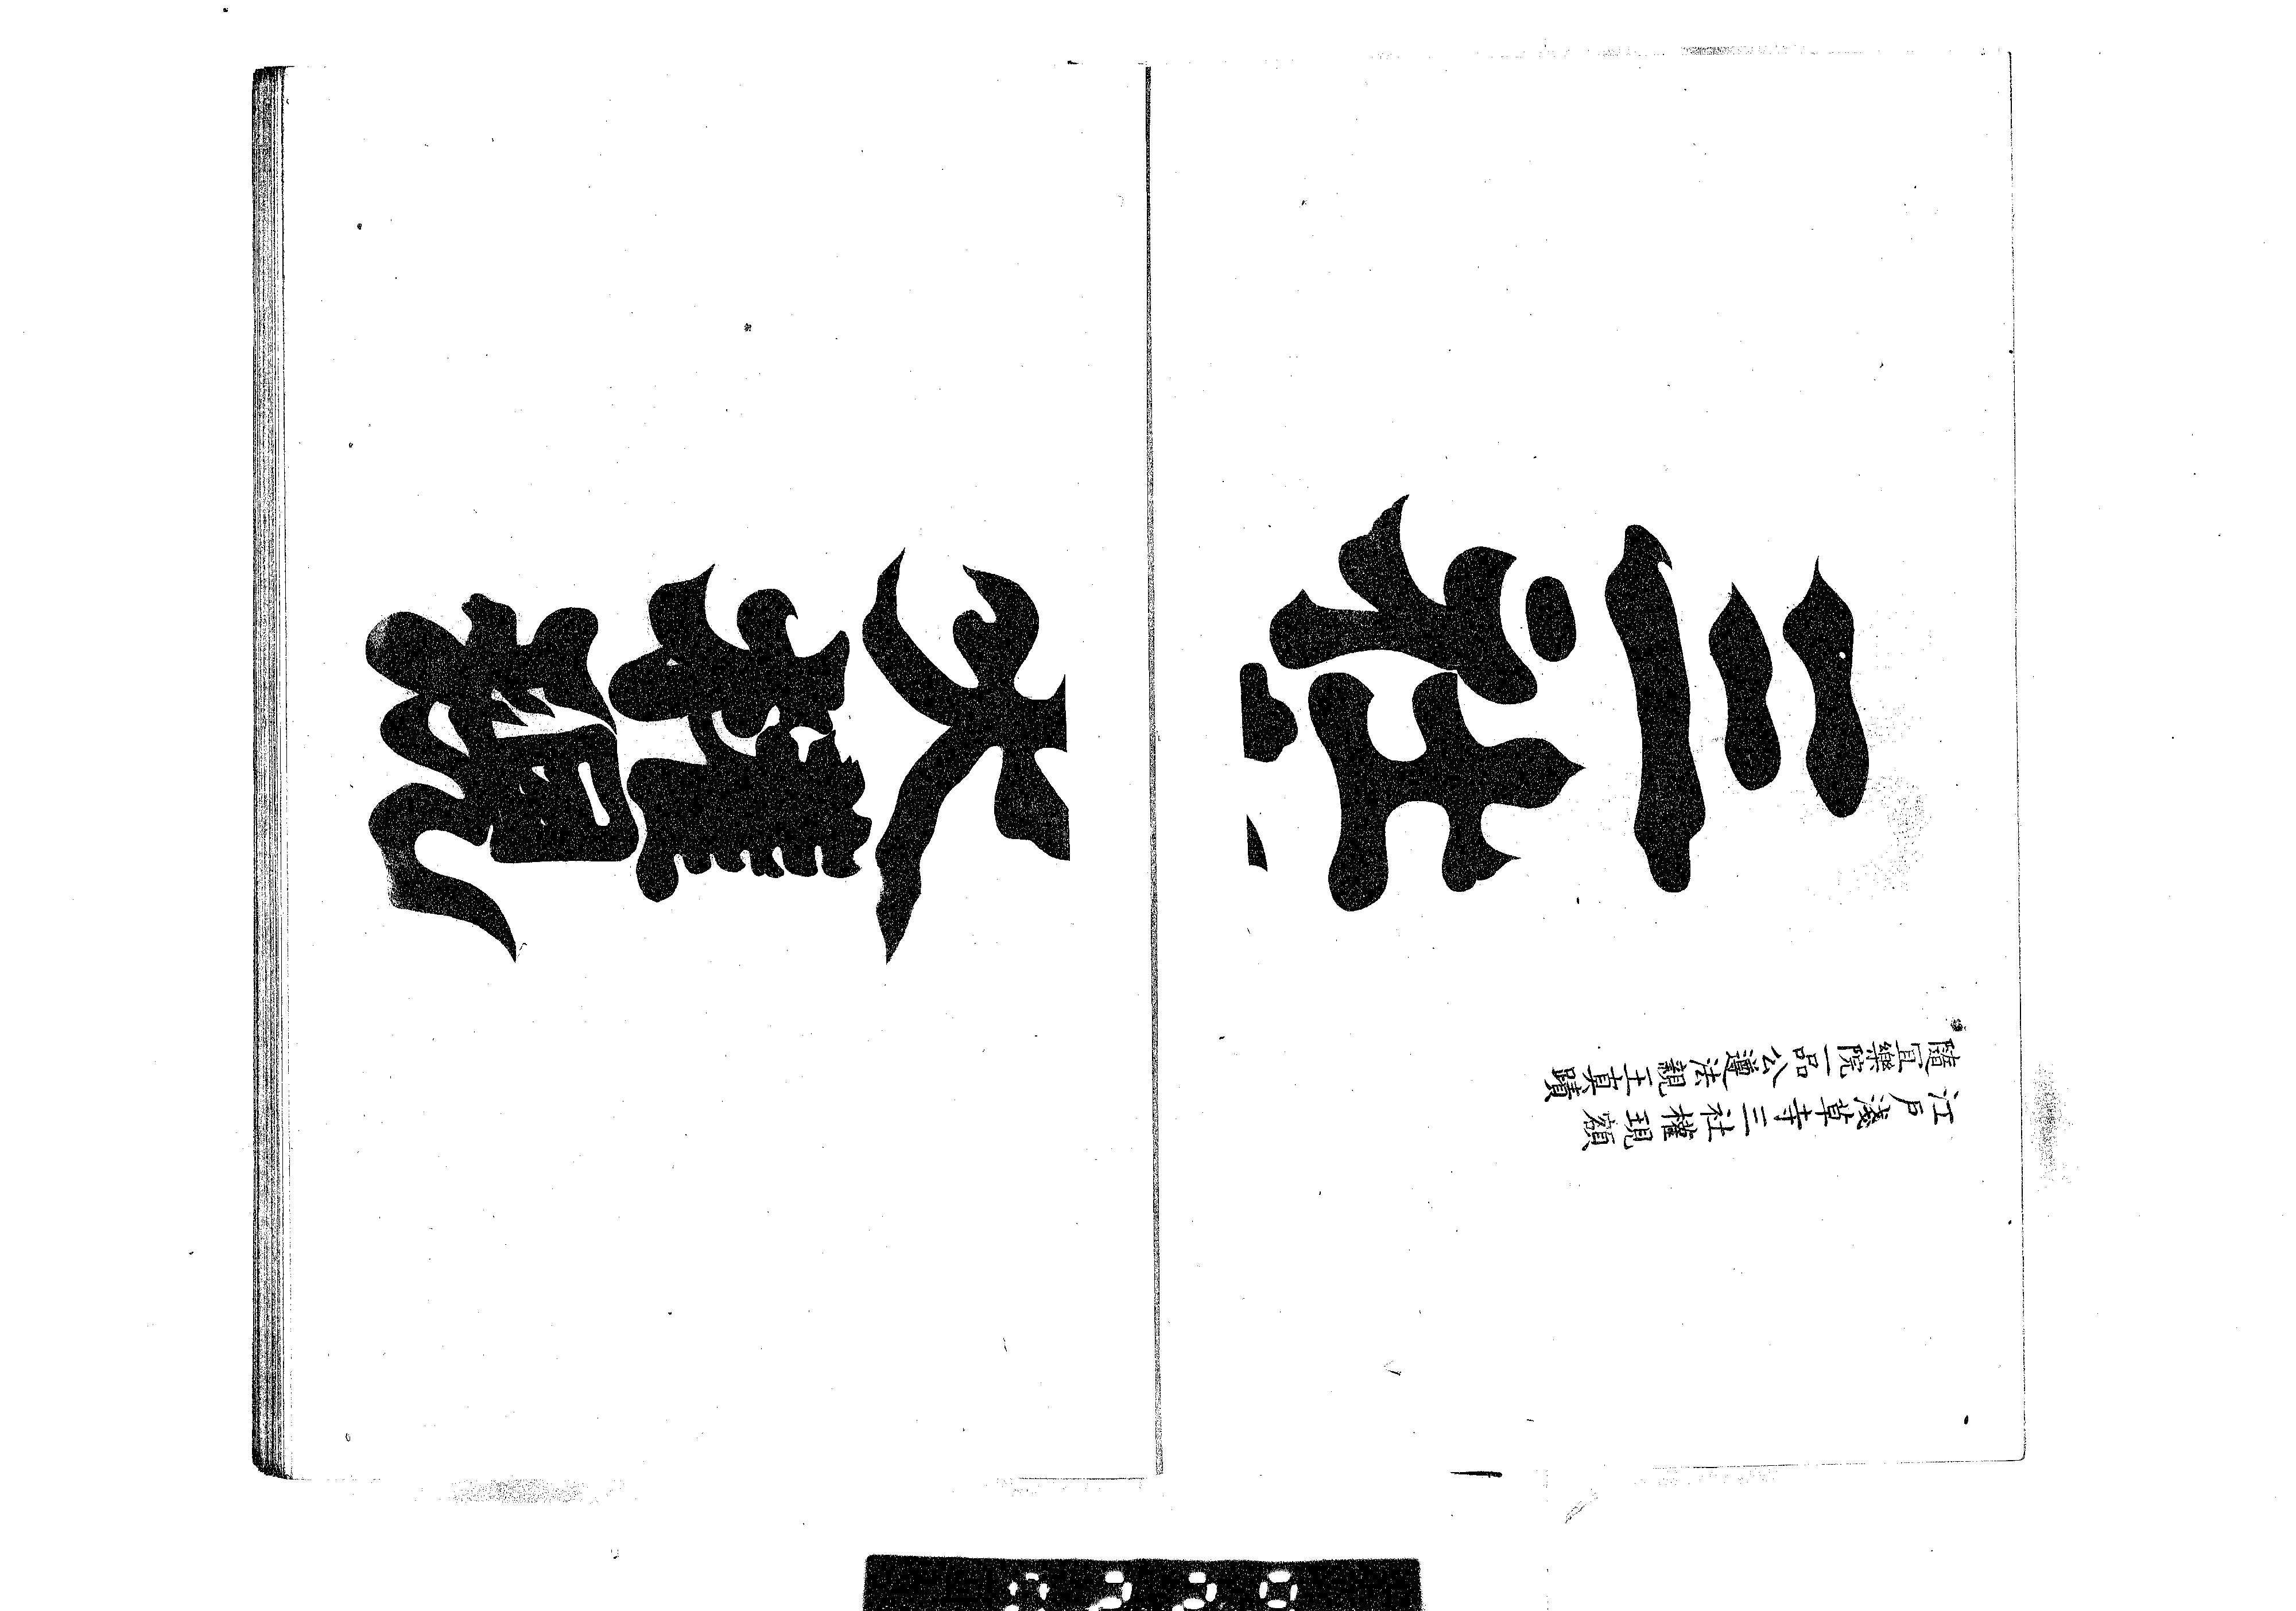 江戸淺草寺三社權現額
隨宜樂院一品公遵法親王真蹟
三社大權現